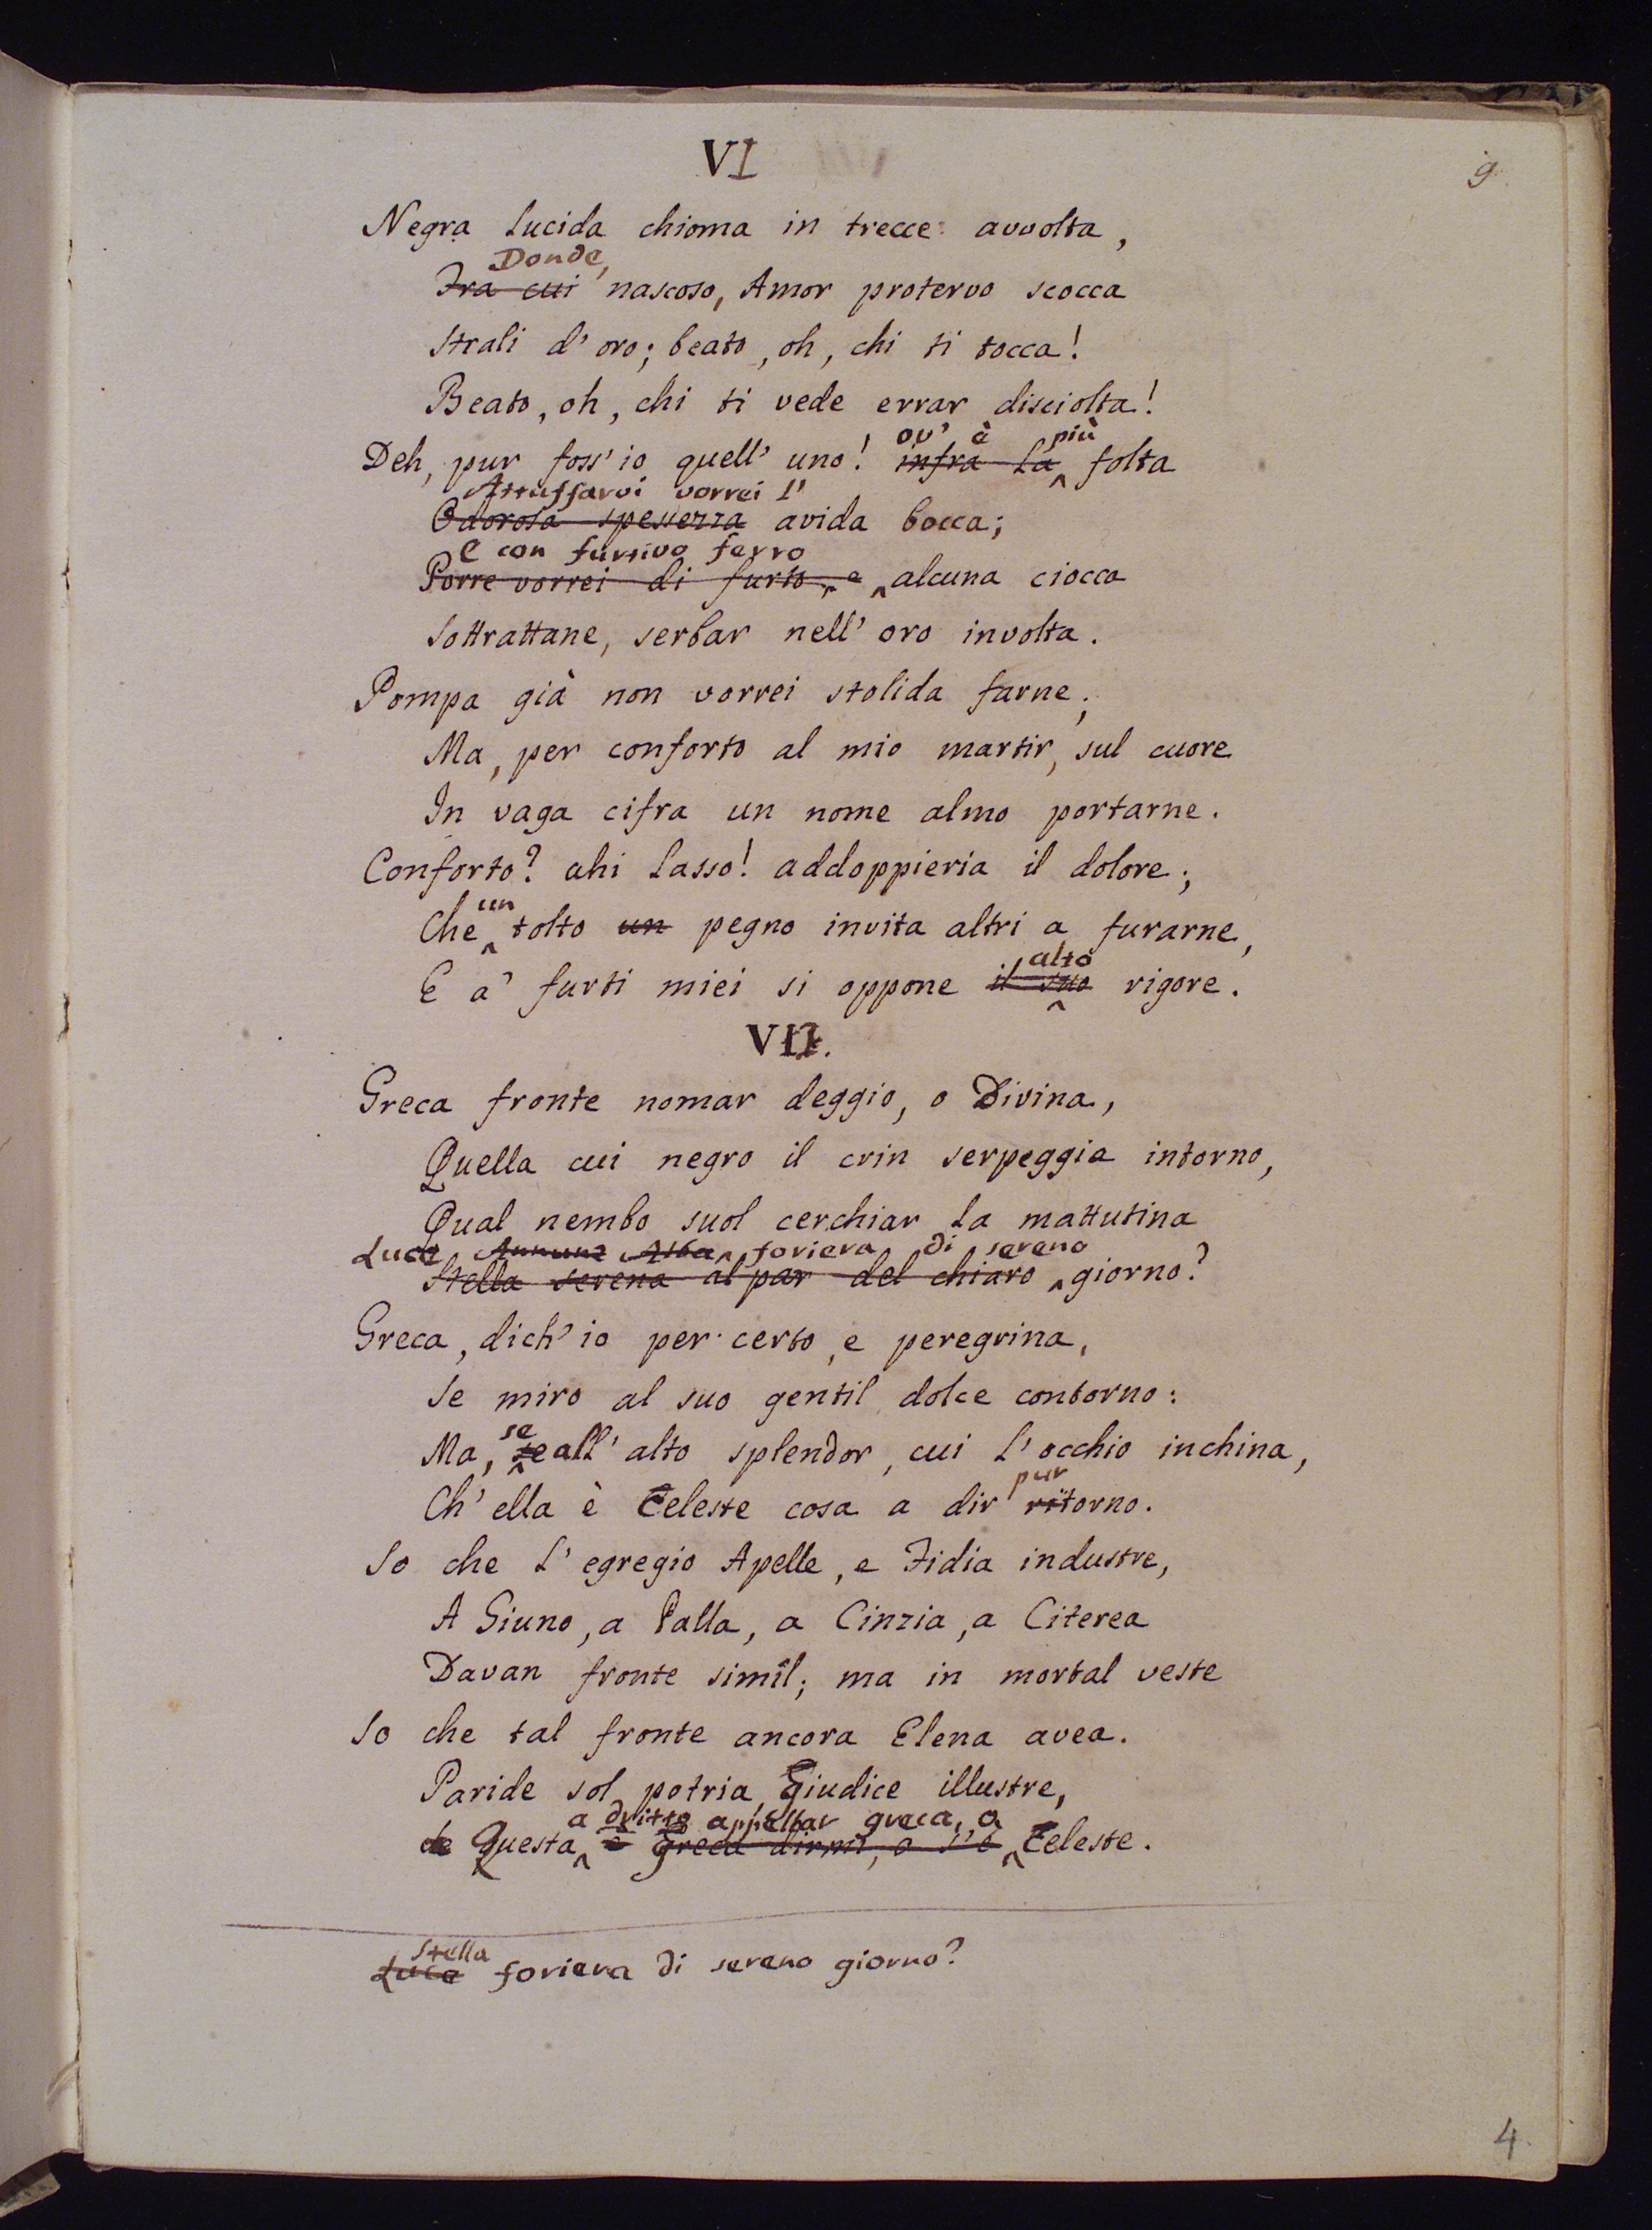 VI
9.
Negra lucida chioma in trecce avvolta,
Donde,
Fra cui nascoso, Amor protervo scocca
Strali d'oro; beato, oh, chi ti tocca!
Beato, oh, chi ti vede errar disciolta!
ov' è più
Deh, pur foss'io quell'uno! infra la folta
Attuffarvi vorrei l'
Odorosa spessezza avida bocca;
E con furtivo ferro
Porre vorrei di furto, e alcuna ciocca
Sottrattane, serbar nell'oro involta.
Pompa già non vorrei stolida farne;
Ma, per conforto al mio martir, sul cuore
In vaga cifra un nome almo portarne.
Conforto? ahi lasso! addoppieria il dolore;
un
Che tolto un pegno invita altri a furarne,
alto
E a' furti miei si oppone il suo rigore.
VII.
Greca fronte nomar deggio, o Divina,
Quella cui negro il crin serpeggia intorno,
Qual nembo suol cerchiar la mattutina
Luce Alba, foriera di sereno
Stella serena al par del chiaro giorno?
Greca, dich'io per certo, e peregrina,
Se miro al suo gentil dolce contorno:
se
Ma, se all'alto splendor, cui l'occhio inchina,
pur
Ch'ella è Celeste cosa a dir ritorno.
So che l'egregio Apelle, e Fidia industre,
A Giuno, a Palla, a Cinzia, a Citerea
Davan fronte simìl; ma in mortal veste
So che tal fronte ancora Elena avea.
Paride sol potria, Giudice illustre,
a dritto appellar greca, o
Questa è greca dirmi, o s'è Celeste.
Stella
Luce foriera di sereno giorno?
4.